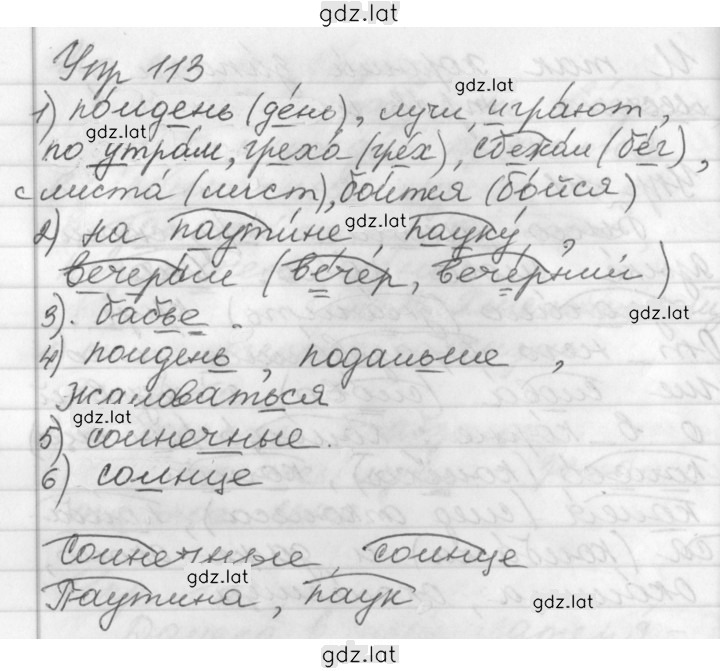 gdz.lat
Упр 113
gdz.lat
1) по́лдень (де́нь), лучи, игра́ют,
gdz.lat
по утра́м, греха́ (гре́х), сбежа́л (бе́г),
с листа́ (ли́ст), бои́тся (бо́йся)
2) на паути́не, пауку́,
gdz.lat
вечера́м (ве́чер, вече́рний)
gdz.lat
3). бабье.
4) полдень, подальше,
жаловаться
gdz.lat
5) солнечные.
6) солнце
солнечные, солнце
gdz.lat
Паутина, паук
gdz.lat
gdz.lat